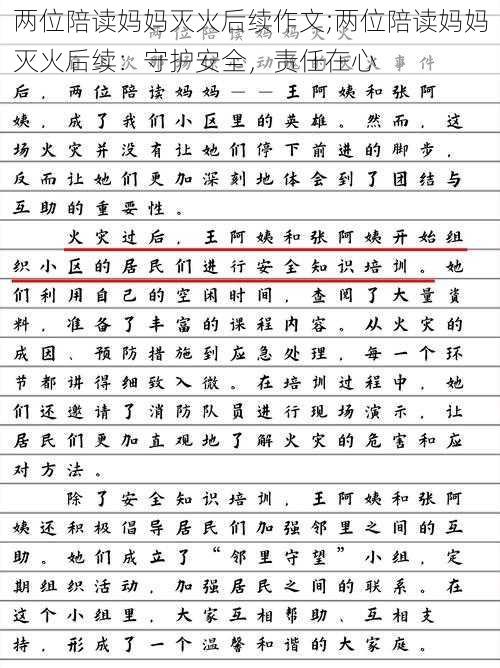 两位陪读妈妈灭火后续作文;两位陪读妈妈
灭火后续：守护安全，责任在心
两位陪读妈妈灭火
事件
后，两位陪读妈妈——王阿姨和张阿
姨，成了我们小区里的英雄。然而，这
场火灾并没有让她们停下前进的脚步，
反而让她们更加深刻地体会到了团结与
互助的重要性。
火灾过后，王阿姨和张阿姨开始组
织小区的居民们进行安全知识培训。她
们利用自己的空闲时间，查阅了大量资
料，准备了丰富的课程内容。从火灾的
成因、预防措施到应急处理，每一个环
节都讲得细致入微。在培训过程中，她
们还邀请了消防队员进行现场演示，让
居民们更加直观地了解火灾的危害和应
对方法。
除了安全知识培训，王阿姨和张阿
姨还积极倡导居民们加强邻里之间的互
助。她们成立了“邻里守望”小组，定
期组织活动，加强居民之间的联系。在
这个小组里，大家互相帮助、互相支
持，形成了一个温馨和谐的大家庭。